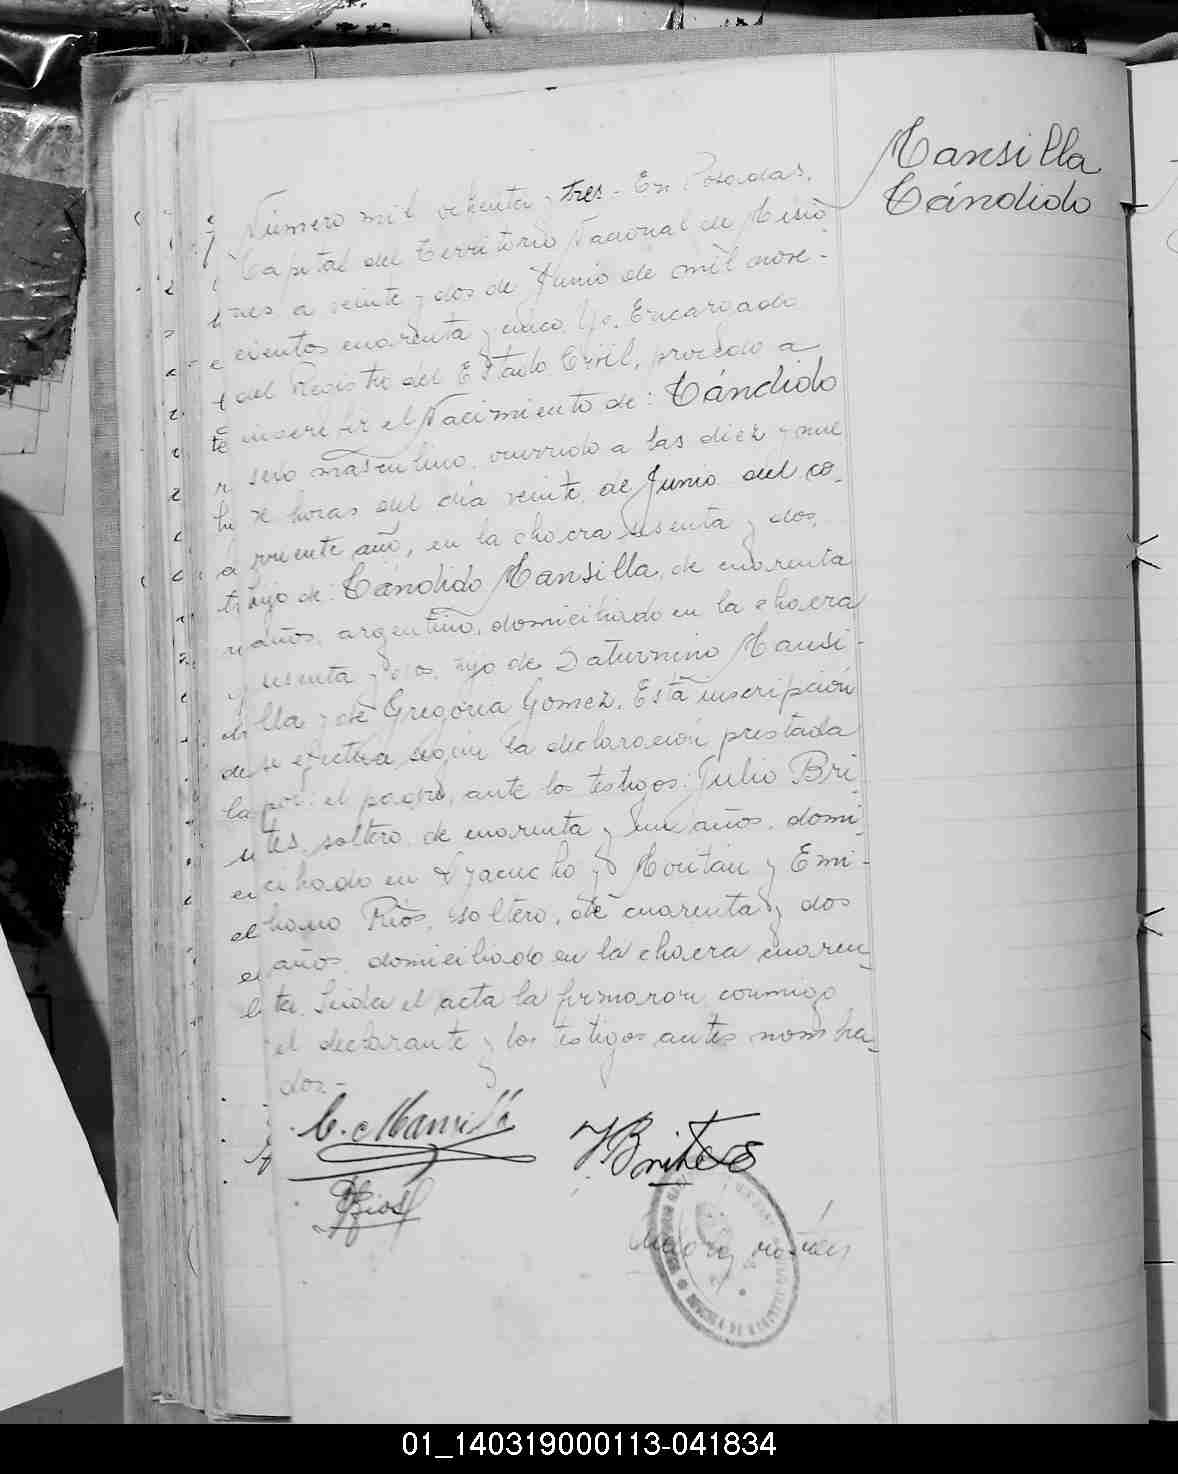 Mansilla
Cándido
Número mil ochenta y tres - En Posadas,
Capital del Territorio Nacional de Misio
nes a veinte y dos de Junio de mil nove-
cientos cuarenta y cinco. Yo, Encargado
del Registro del Estado Civil, procedo a
inscribir el Nacimiento de: Cándido
sexo masculino, ocurrido a las diez y nue
ve horas del día veinte de Junio del co-
rriente año, en la chacra sesenta y dos,
hijo de: Cándido Mansilla, de cuarenta
años, argentino, domiciliado en la chacra
sesenta y dos, hijo de Saturnino Mansi-
lla y de Gregoria Gomez. Esta inscripción
se efectúa según la declaración prestada
por: el padre, ante los testigos: Julio Bri-
tes, soltero, de cuarenta y un años, domi-
ciliado en Ayacucho y Roután y Emi-
liano Ríos, soltero, de cuarenta y dos
años, domiciliado en la chacra cuaren-
ta. Leida el acta la firmaron conmigo
el declarante y los testigos antes nombra-
dos.-
C. Mansilla
J. Brites
Rios
01_140319000113-041834